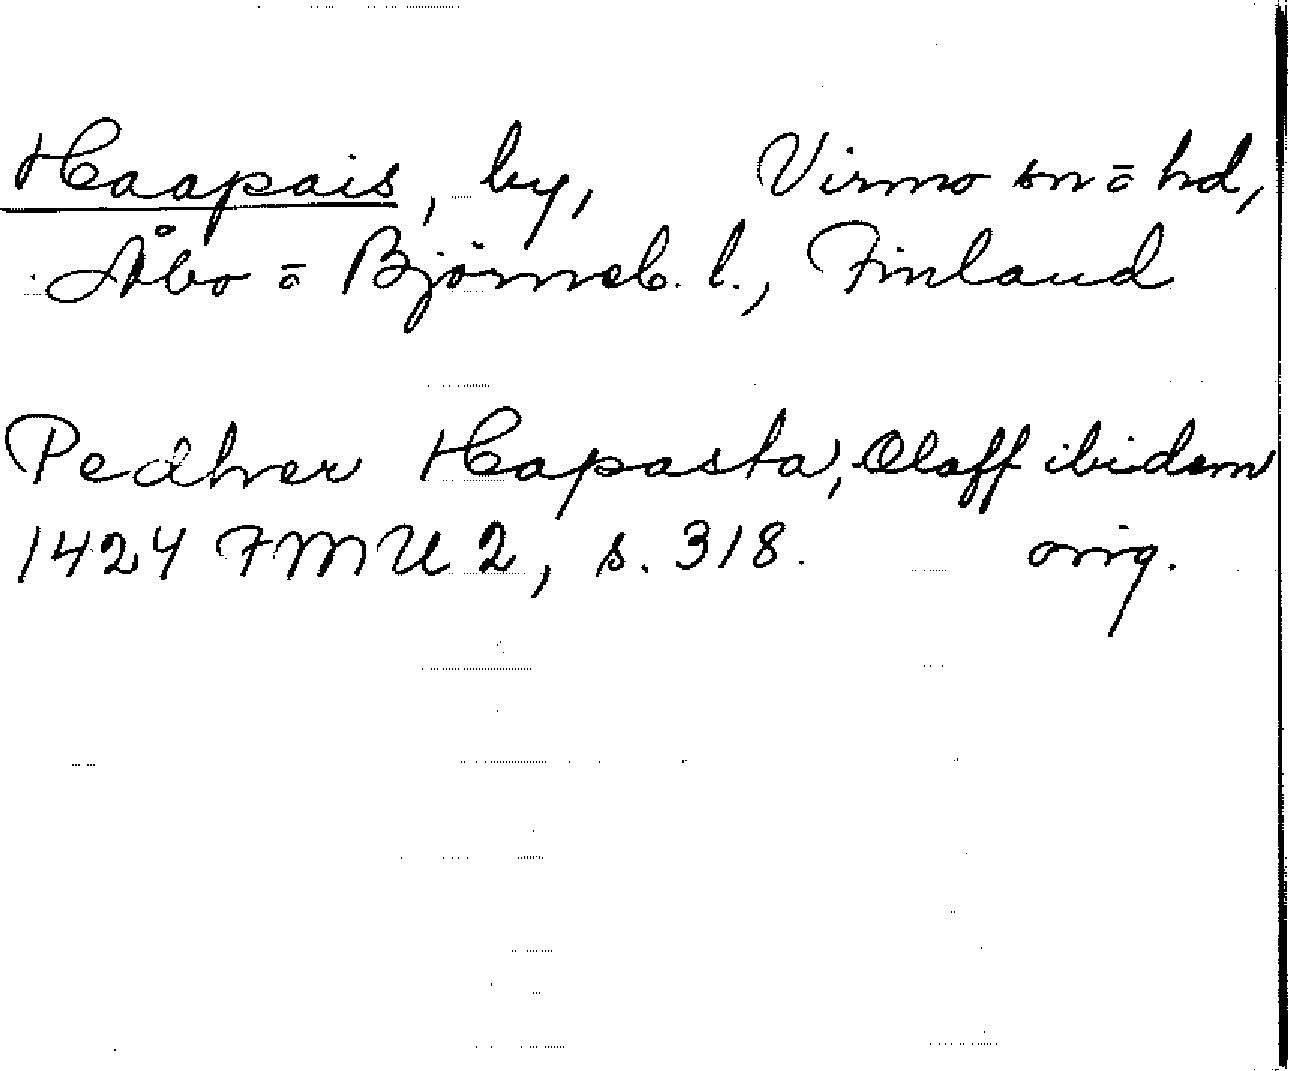 Haapais, by, Virmo sn o hd,
Åbo o Björneb. l., Finland
Pedher Hapasta, Olaff ibidem
1424 FMU 2, s. 318. orig.